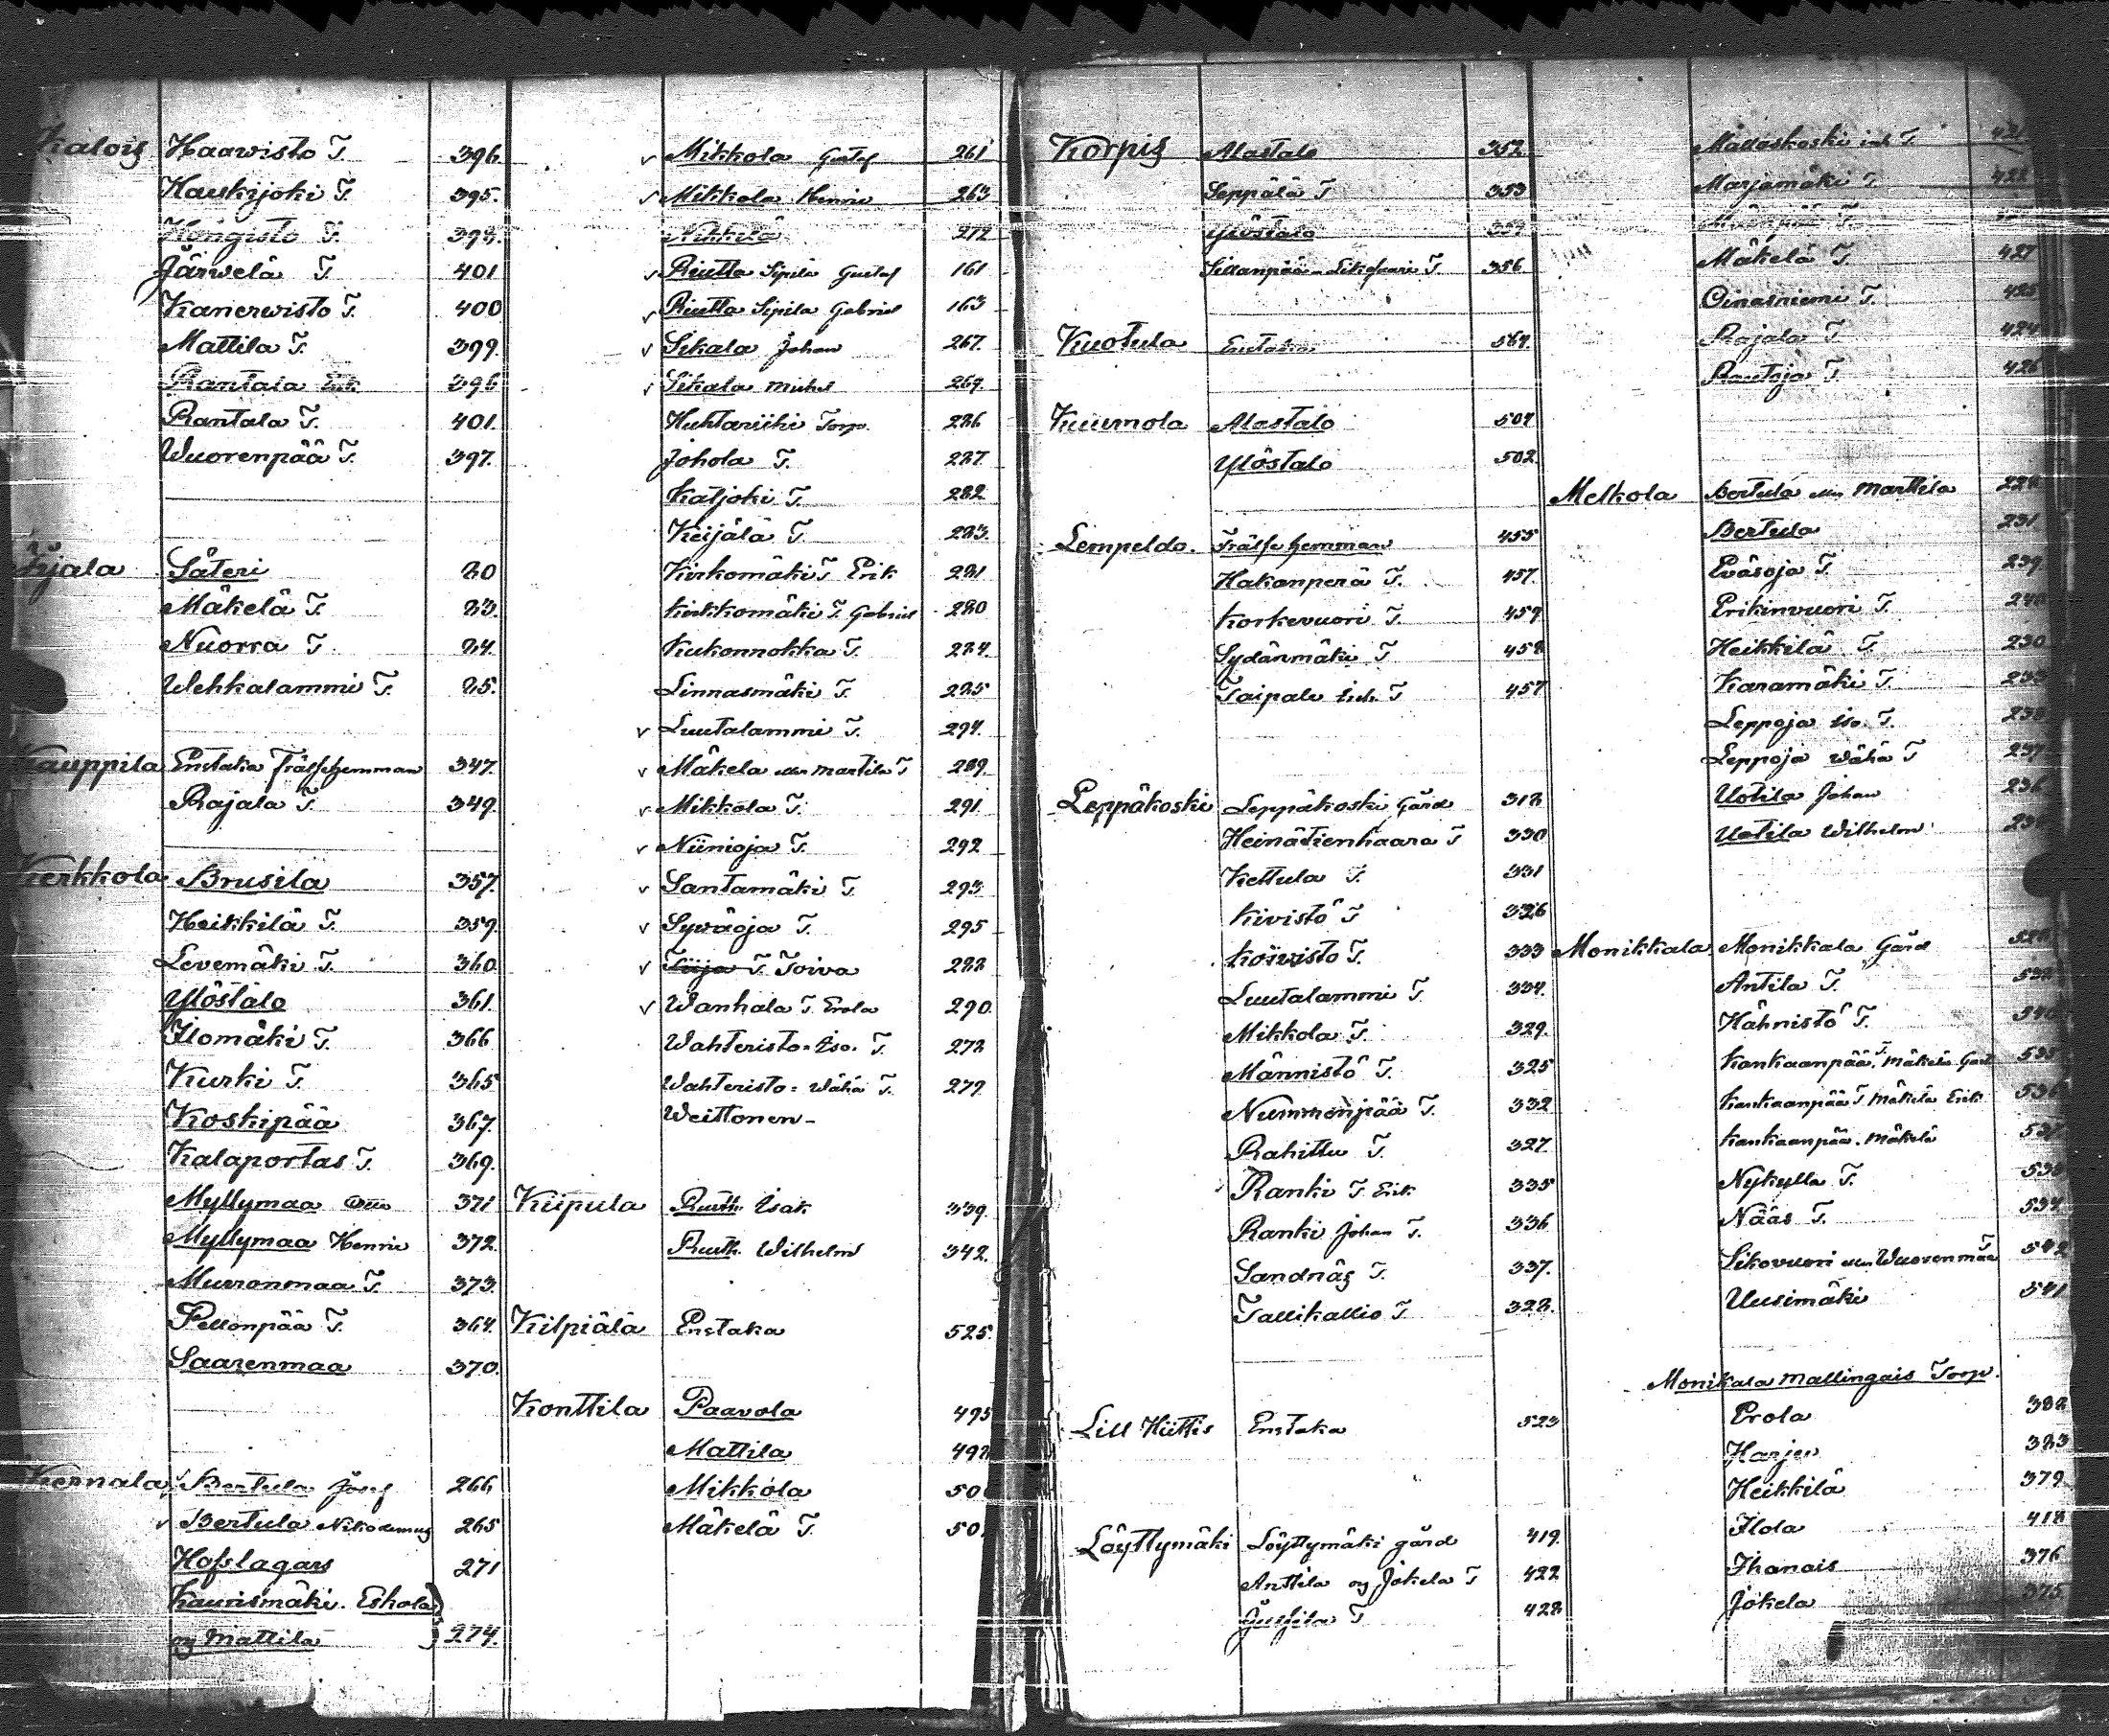 Kalois Haavisto T. 396
Haukijoki T. 395.
Hongisto T. 398.
Järvelä T. 401
Kanervisto T. 400
Mattila T. 399.
Rantala Erik 396
Rantala T. 401.
Wuorenpää T. 397.
Säteri 20
Mäkelä T. 23.
Nuorra T. 24.
Wehkalammi T. 25.
Kauppila Enstaka Frälsehemman 347.
Rajala T. 349.
Kerkkola Brusila 357.
Heikkilä T. 359.
Levemäki T. 360
Ylöstalo 361.
Ilomäki T. 366
Kurki T. 365
Koskipää 367.
Kalaportas T. 369.
Myllymaa 371
Myllymaa Henric 372.
Murronmaa T. 373.
Pellonpää T. 364.
Saarenmaa 370.
Kernala Bertula Josef 266
v Bertula Nikodemus 265
Hofslagars 271
Kaurismäki. Eskola
og Mattila 274.
v Mikkola Gustaf 261
v Mikkola Henric 263
Nikkilä 272
v Riutta Sipilä Gustaf 161
v Riutta Sipilä Gabriel 163
v Sikala Johan 267.
v Sikala Michel 269.
Huhtariihi Torp. 286
Johola T. 287.
Katjoki T. 282
Keijälä T. 283.
Kirkomäki T Erik 281
Kirkkomäki T. Gabriel 280
Kukonnokka T. 284.
Linnasmäki T. 285
v Luutalammi T. 294.
v Mäkela eller Martila T 289.
v Mikkola T. 291.
v Niinioja T. 292
v Santamäki T. 293
v Syväoja T. 295
v Tiija T. Toiva 288
v Wanhala T. Erola 290.
Wahteristo=Iso. T. 278
Wahteristo=Wähä T. 279.
Weittonen-
Kiipula Ruuth Isak 339.
Ruuth Wilhelm 342.
Kilpiälä Enstaka 525.
Konttila Paavola 495
Mattila 498
Mikkola 50
Mäkelä T. 50
Korpis Alastalo 352
Seppälä T 353
Ylöstalo
Sillanpää T 356
Kuotula Enstaka
Kuumola Alastalo 504
Ylöstalo 502.
Lempeldo. Frälsehemman 455
Hakanperä T. 457.
Korkevuori T. 459
Sydänmäki T 458
Taipale T 457
Leppäkoski Leppäkoski Gård 318
Heinätienhaara T 330
Kettula T. 331
Kivistö T 326
Koivisto T. 333
Luutalammi T 334.
Mikkola T. 329.
Männistö T. 325
Nummenpää T. 332
Rahittu T. 327.
Ranki T. Erik 335
Ranki Johan T. 336
Sandnäs T. 337.
Tallikallio T 328.
Lill Hüttis Enstaka 523
Löyttymäki Löyttymäki gård 419.
Anttila og Jokela T 422
Jussila T 428
Mallaskoski T
Marjamäki T
Mäkelä T 427
Oinasniemi T. 425
Rajala T 424
Rautoja T 426
Melkola Bertula eller Marttila
Bertula 231
Eväsoja T. 239
Erikinvuori T. 240
Heikkilä T. 230
Karamäki T. 233
Leppoja Iso. T. 238
Leppoja Wähä T 237
Uotila Johan 236
Uotila Wilhelm
Monikkala Monikkala Gård
Antila T.
Hähnistö T.
Kankaanpää T. Mäkelä Gust 535
Kankaanpää T Mäkelä Erik 536
Kankaanpää. Mäkelä 537
Nykyllä T. 538
Nääs T. 534
Sikovuori eller Wuorenmaa T 542
Uusimäki 541
Monikala Mallingais Torp.
Erola 382
Harju 383
Heikkilä 379
Ilola 418
Ihanais 376
Jokela 375